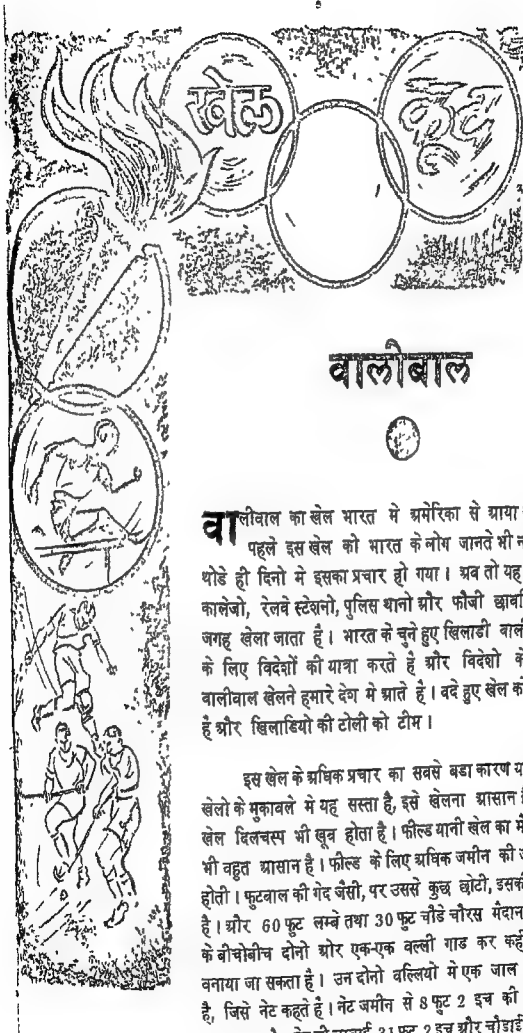 खेल
कूद
वालीबाल
वालीवाल का खेल भारत मे अमेरिका से आया
पहले इस खेल को भारत के लोग जानते भी
थोडे ही दिनो मे इसका प्रचार हो गया। अब तो यह
कालेजो, रेलवे स्टेशनो, पुलिस थानो और फौजी
जगह खेला जाता है। भारत के चुने हुए खिलाडी
के लिए विदेशों की यात्रा करते है और विदेशो
वालीवाल खेलने हमारे देश मे आते है। वदे हुए खेल
है और खिलाडियो की टोली को टीम।
इस खेल के अधिक प्रचार का सवसे बडा कारण
खेलो के मुकावले मे यह सस्ता है, इसे खेलना आसान
खेल दिलचस्प भी खूव होता है। फील्ड यानी खेल का
भी वहुत आसान है। फील्ड के लिए अधिक जमीन की
होती। फुटवाल की गेद जैसी, पर उससे कुछ छोटी,
है। और 60 फुट लम्बे तथा 30 फुट चौडे चौरस मैदान
के बीचोबीच दोनो ओर एक-एक वल्ली गाड कर
वनाया जा सकता है। उन दोनो वल्लियो मे एक जाल
है, जिसे नेट कहते है। नेट जमीन से 8 फुट 2 इच की
31 फुट 2 इच और चौडाई